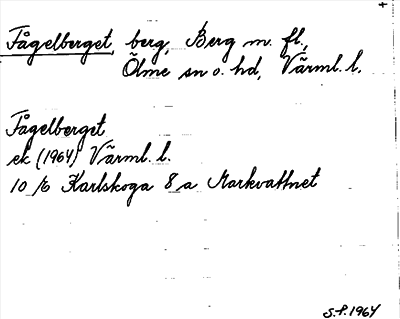 Fågelberget, berg, Berg m. fl.,
Ölme sn o. hd, Värml. l.
Fågelberget
ek (1964) Värml. l.
10 /6 Karlskoga 8 a Markvattnet
S.P. 1964